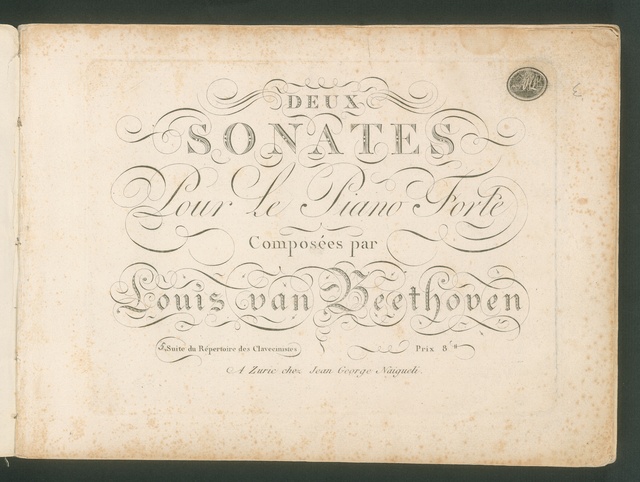 DEUX
SONATES
Pour Le Piano Forte
Composées par
Louis van Beethoven
5. Suite du Répertoire des Clavecinistes
Prix 8 fr.
A Zuric chez Jean George Näigueli.